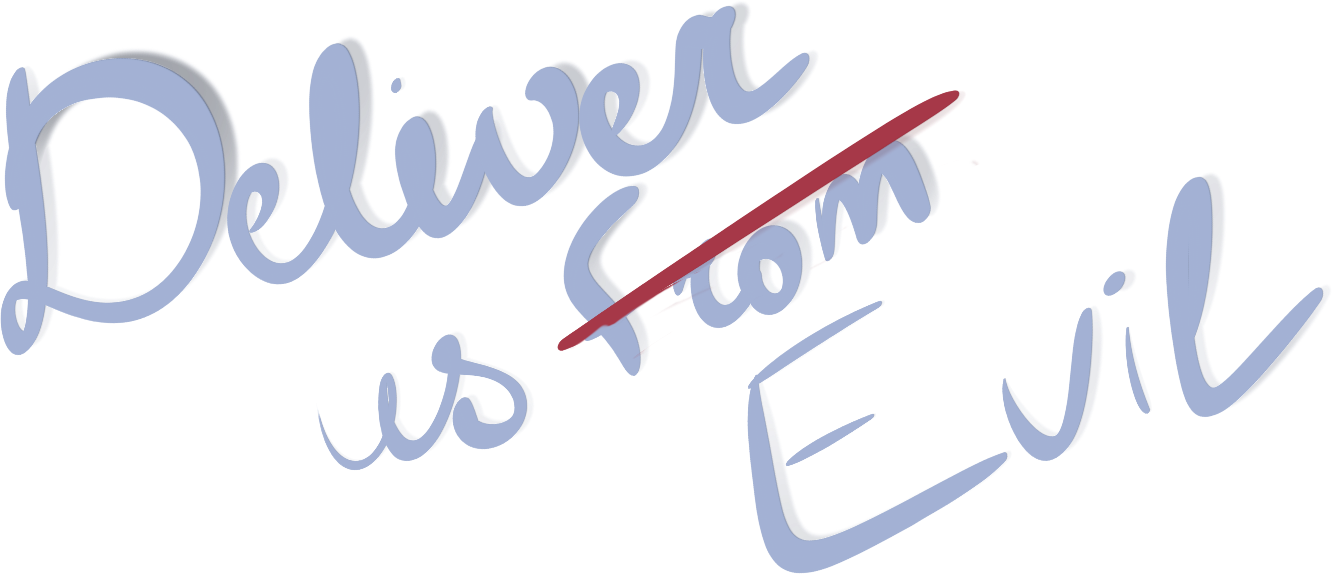 Deliver
us from
Evil